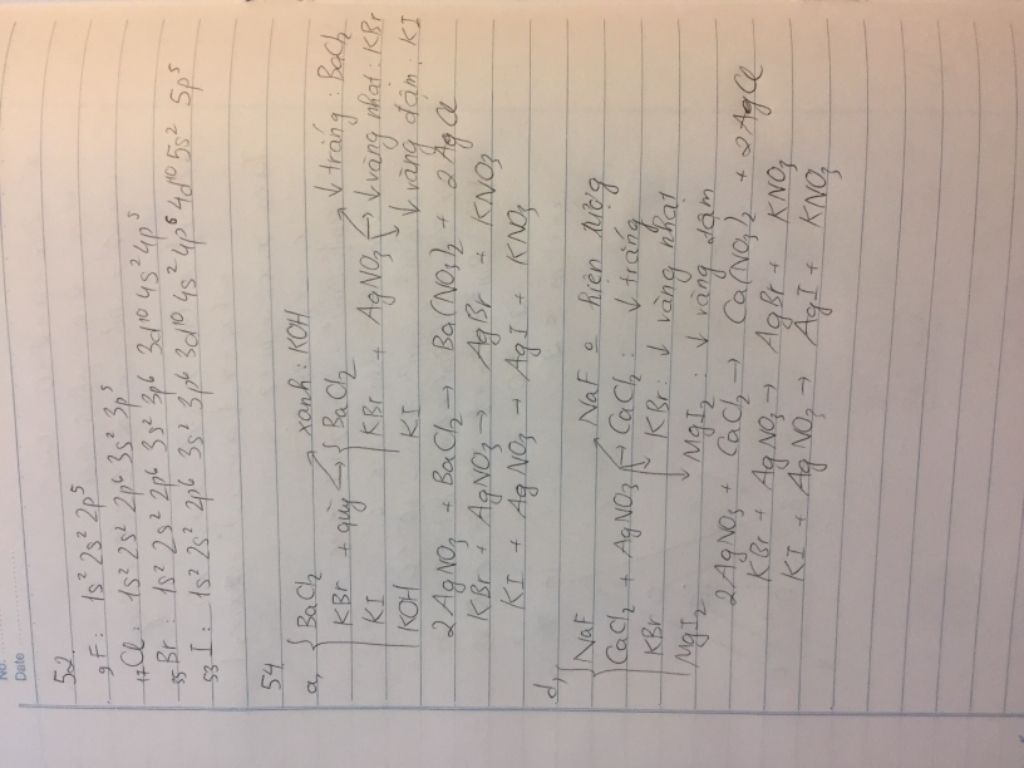 No:
Date
52.
₉F : 1s² 2s² 2p⁵
₁₇Cl : 1s² 2s² 2p⁶ 3s² 3p⁵
₃₅Br : 1s² 2s² 2p⁶ 3s² 3p⁶ 3d¹⁰ 4s² 4p⁵
₅₃I : 1s² 2s² 2p⁶ 3s² 3p⁶ 3d¹⁰ 4s² 4p⁶ 4d¹⁰ 5s² 5p⁵
54
a, { BaCl₂ ↗ xanh : KOH
KBr + quỳ → { BaCl₂ ↗ ↓ trắng : BaCl₂
KI KBr + AgNO₃ → ↓ vàng nhạt : KBr
KOH KI ↘ ↓ vàng đậm : KI
2AgNO₃ + BaCl₂ → Ba(NO₃)₂ + 2AgCl
KBr + AgNO₃ → AgBr + KNO₃
KI + AgNO₃ → AgI + KNO₃
d, { NaF ↗ NaF : hiện tượng
CaCl₂ + AgNO₃ → CaCl₂ : ↓ trắng
KBr KBr : ↓ vàng nhạt
MgI₂ ↘ MgI₂ : ↓ vàng đậm
2AgNO₃ + CaCl₂ → Ca(NO₃)₂ + 2AgCl
KBr + AgNO₃ → AgBr + KNO₃
KI + AgNO₃ → AgI + KNO₃